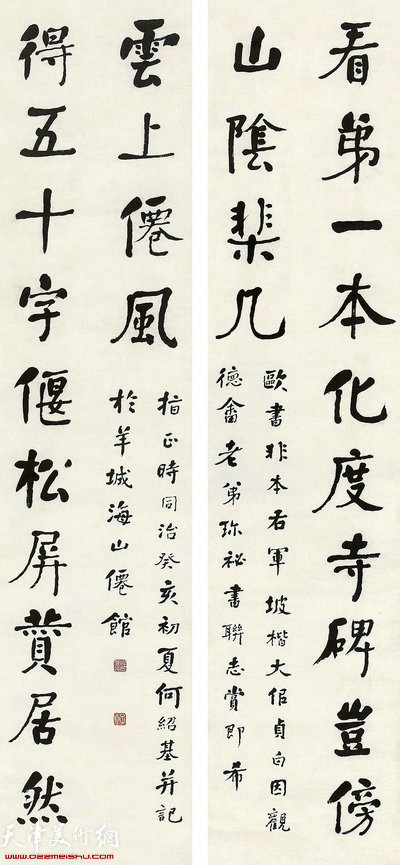 看第一本化度寺碑豈傍
山陰棐几
歐書非本右軍坡楷大佀貞白因觀
德畬老弟珍祕書聯志賞即希
得五十字偃松屏贊居然
雲上僊風
指正時同治癸亥初夏何紹基并記
於羊城海山僊館
天津美術網
www.022meishu.com